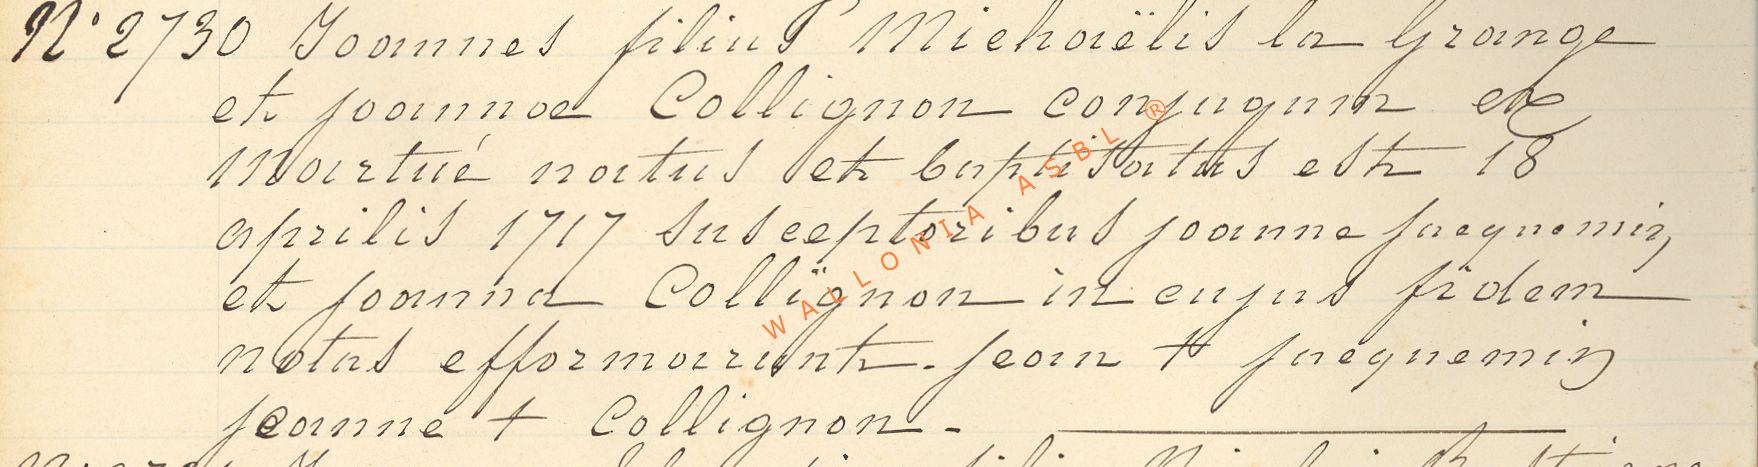 N° 2730 Joannes filius Michaëlis la Grange
et joannoe Collignon conjugum ex
martué natus et baptisatus est 18
aprilis 1717 susceptoribus joanne jacquemin
et joanna Collignon in cujus fidem
notas efformarunt. jean + jacquemin
jeanne + Collignon -
WALLONIA ASBL ®